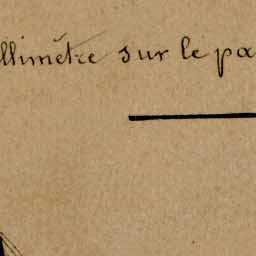 llimètre sur le pa